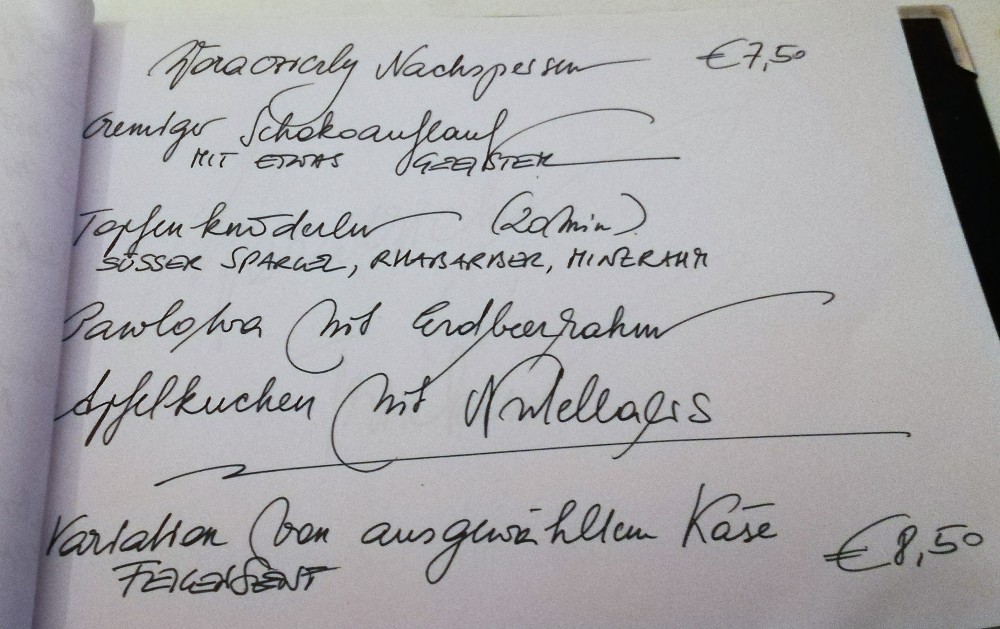 Nachspeisen € 7,50
Cremiger Schokoauflauf
MIT ETWAS GEEISTEM
Topfenknöderln (20 Min)
SÜSSER SPARGEL, RHABARBER, MINZRAHM
Pawlowa mit Erdbeerrahm
Apfelkuchen mit Nutellaeis
Variation von ausgewähltem Käse
FEIGENSENF € 8,50